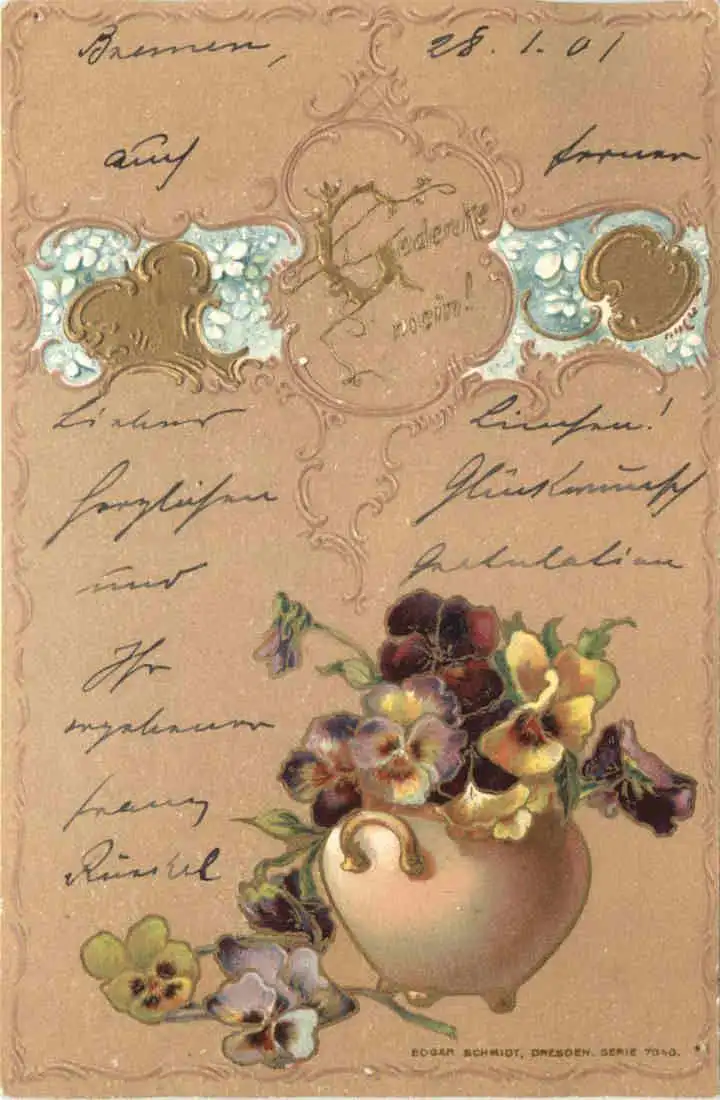 Bremen, 28. 1. 01
auch ferner
Gedenke
mein!
Lieber Linchen!
Herzlichen Glückwunsch
und Gratulation
Ihr
ergebener
Franz
EDGAR SCHMIDT, DRESDEN. SERIE 7040.